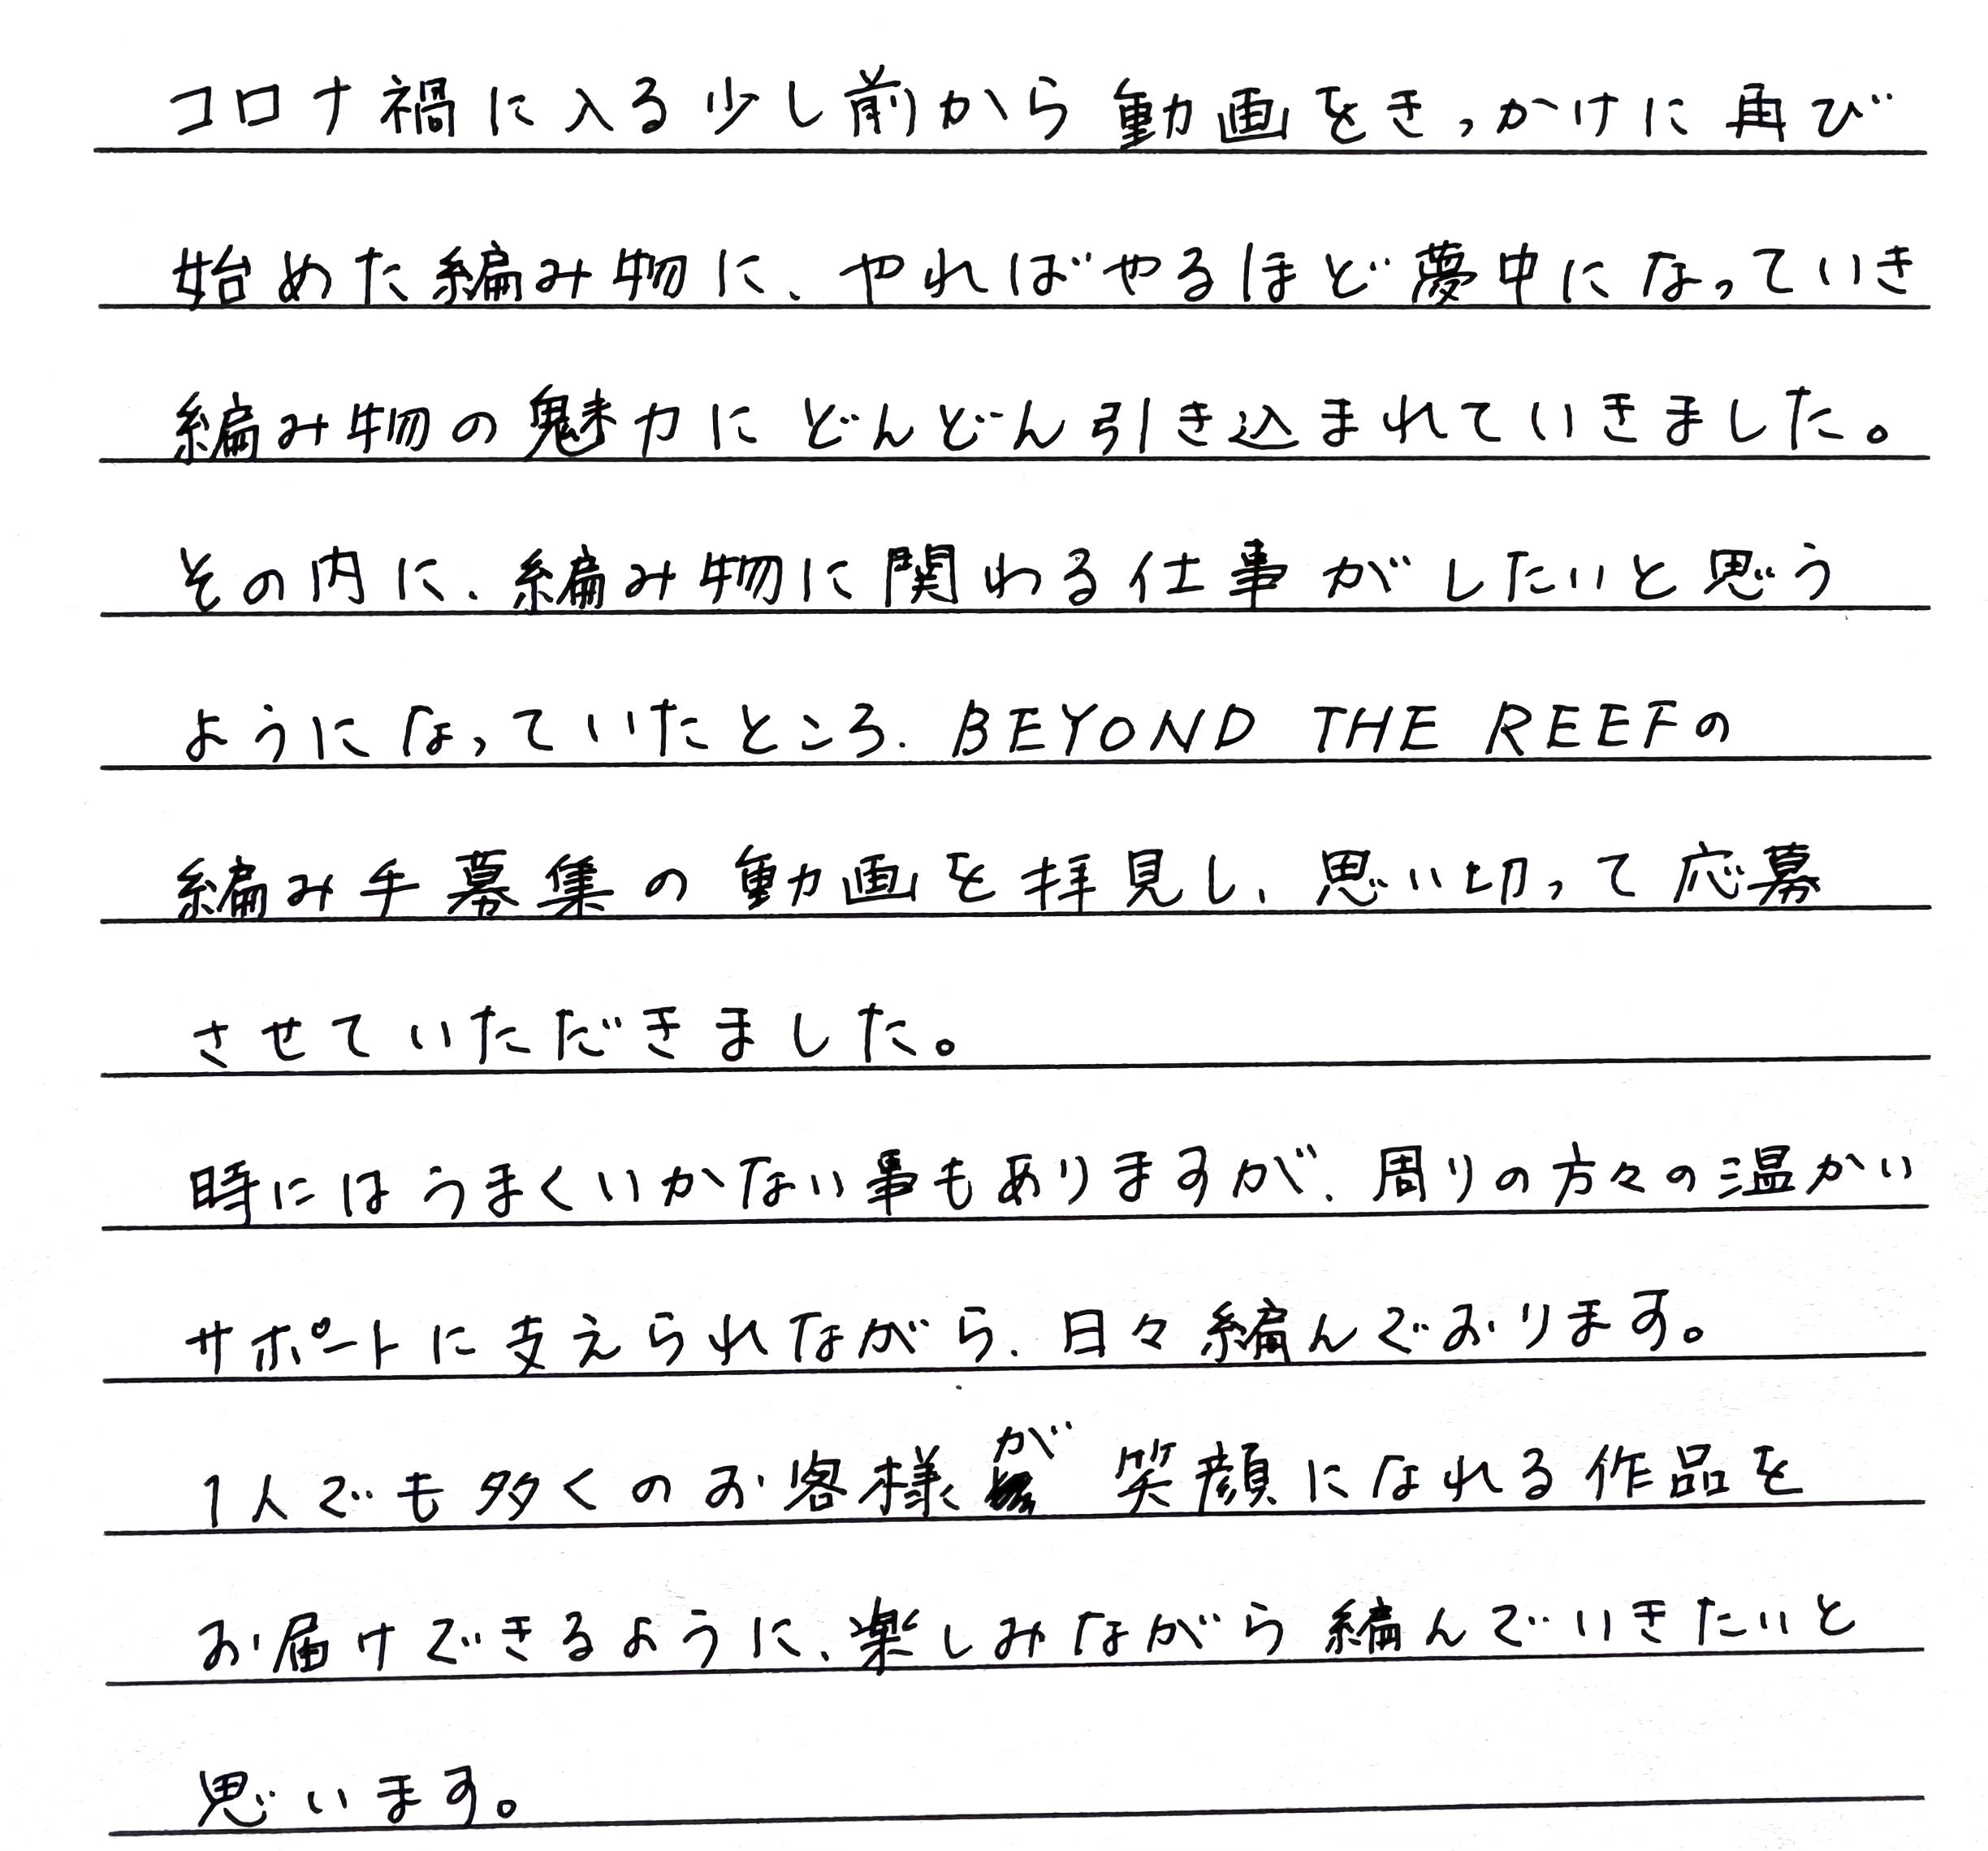 コロナ禍に入る少し前から動画をきっかけに再び
始めた編み物に、やればやるほど夢中になっていき
編み物の魅力にどんどん引き込まれていきました。
その内に、編み物に関わる仕事がしたいと思う
ようになっていたところ、BEYOND THE REEFの
編み手募集の動画を拝見し、思い切って応募
させていただきました。
時にはうまくいかない事もありますが、周りの方々の温かい
サポートに支えられながら、日々編んでおります。
1人でも多くのお客様が笑顔になれる作品を
お届けできるように、楽しみながら編んでいきたいと
思います。